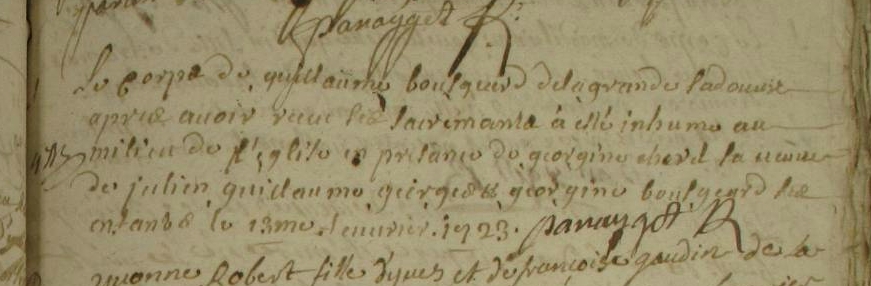 panayget R.
Le Corps de guillaume boulguerd de la grande ladouve
apres avoir receu les sacremants à esté inhume au
milieu de l'eglise en presance de georgine cherel sa veuve
de julien guillaume georges & georgine boulguerd ses
enfants le 13me fevrier 1723. panayget R
yvonne Robert fille d'yves et de françoise gaudin de la